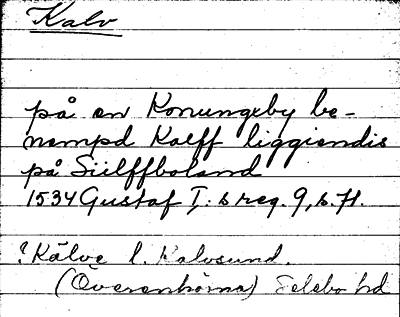 Kalv
på en Konungxby be-
nempd Kalff liggiendis
på Siilffboland
1534 Gustaf I:s reg. 9, s. 71.
? Kälve l. Kalvsund.
(Överenhörna) Selebo hd